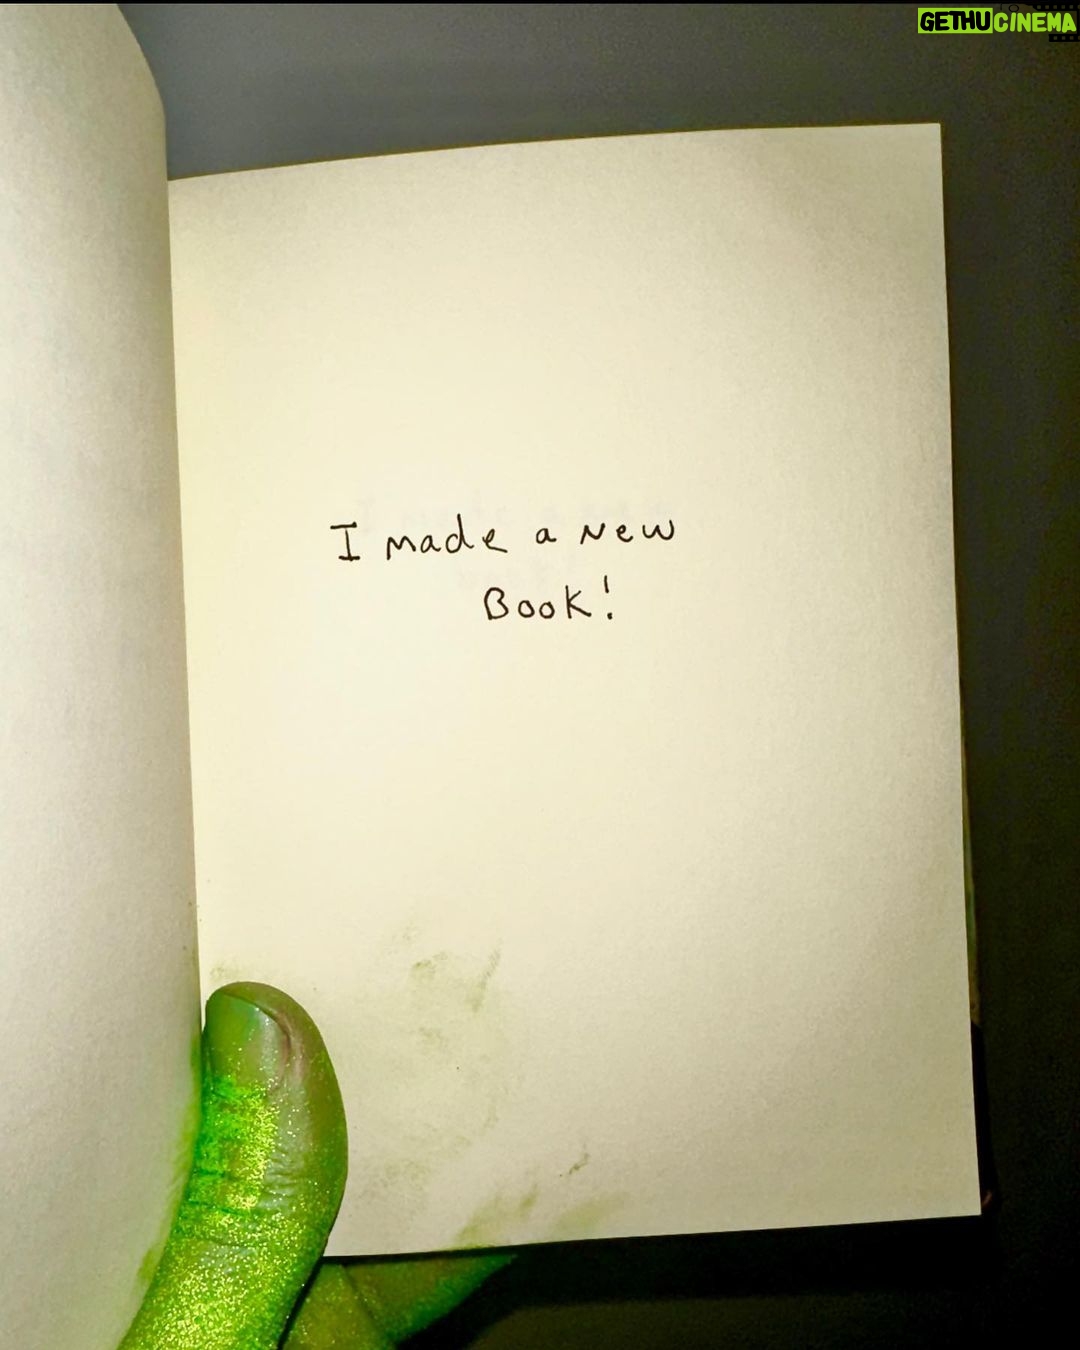 GETHUCINEMA
I made a new
Book!